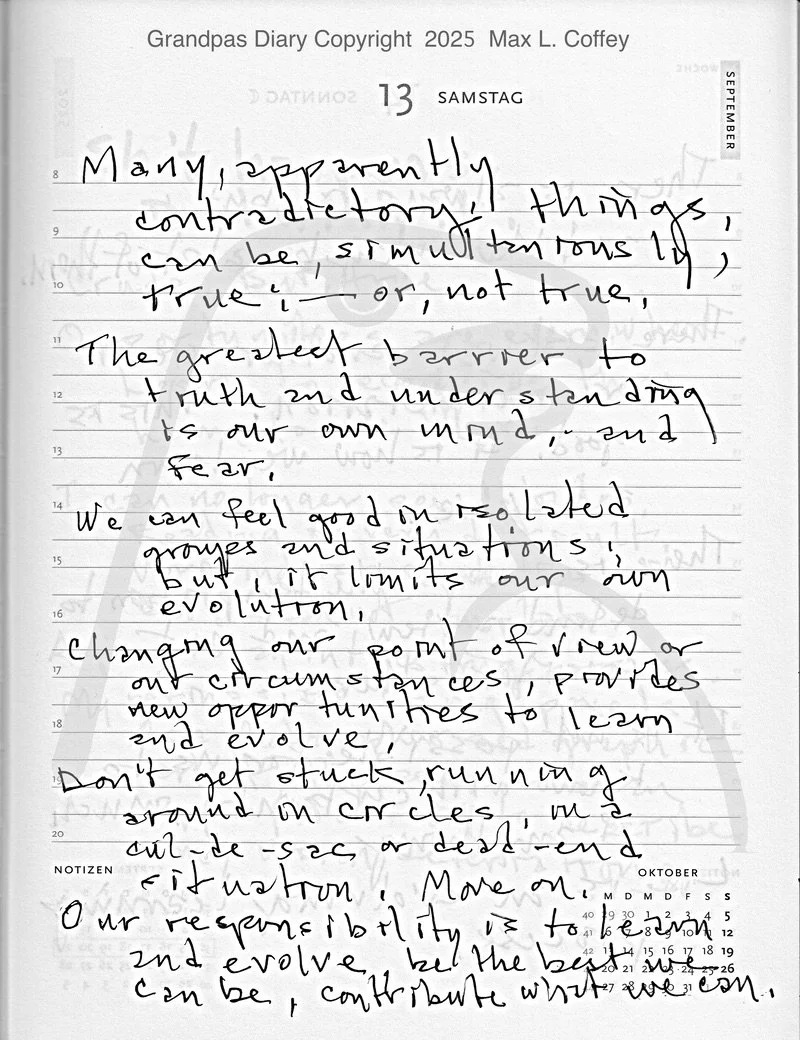 Grandpas Diary Copyright 2025 Max L. Coffey
13 SAMSTAG
SEPTEMBER
8 Many, apparently
contradictory, things,
9 can be, simultaniously,
10 true; — or, not true.
11 The greatest barrier to
12 truth and understanding
is our own mind, and
13 fear.
14 We can feel good in isolated
groups and situations;
15 but, it limits our own
16 evolution.
Changing our point of view or
17 our circumstances, provides
new opportunities to learn
18 and evolve.
19 Don't get stuck, running
around in circles, in a
20 cul-de-sac or dead-end
NOTIZEN
situation. Move on.
Our responsibility is to learn
and evolve, be the best we
can be, contribute what we can.
OKTOBER
M D M D F S S
40 29 30 1 2 3 4 5
41 6 7 8 9 10 11 12
42 13 14 15 16 17 18 19
43 20 21 22 23 24 25 26
44 27 28 29 30 31